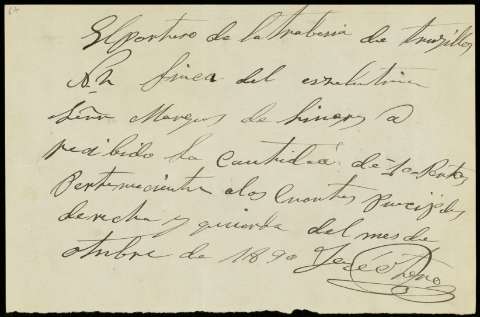 El portero de la trabesia de trugillos
Nn finca del exzelentisimo
Señor Marques de linares a
recibido la Cantidad de
Perteneciente alos Cuartos
derecha y quierda del mes de
otubre de 1890 Jose